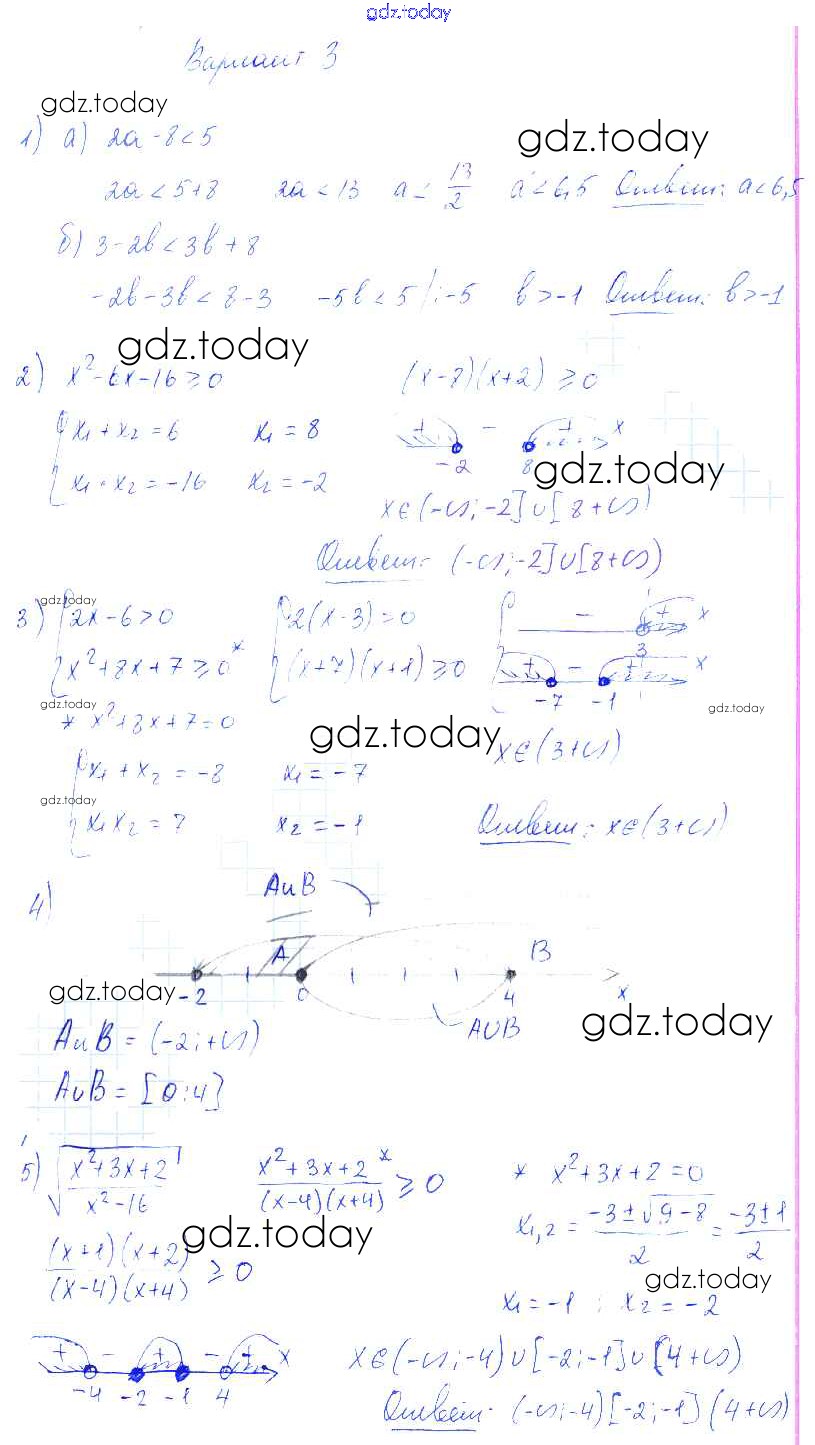 gdz.today
Вариант 3
gdz.today
1) а) 2a - 8 < 5
gdz.today
2a < 5+8   2a < 13   a < 13/2   a < 6,5   Ответ: a < 6,5
б) 3 - 2b < 3b + 8
-2b - 3b < 8 - 3   -5b < 5 |: -5   b > -1   Ответ: b > -1
gdz.today
2) x² - 6x - 16 ≥ 0   (x-8)(x+2) ≥ 0
{ x₁ + x₂ = 6   x₁ = 8   + - + x
x₁ · x₂ = -16   x₂ = -2   -2 8
gdz.today
x ∈ (-∞; -2] ∪ [8 +∞)
Ответ: (-∞; -2] ∪ [8 +∞)
gdz.today
3) { 2x - 6 > 0   { 2(x-3) = 0   - + x
3
x² + 8x + 7 ≥ 0*   (x+7)(x+1) ≥ 0   + - + x
-7 -1
gdz.today
gdz.today
* x² + 8x + 7 = 0
gdz.today
x ∈ (3 +∞)
{ x₁ + x₂ = -8   x₁ = -7
gdz.today
x₁ x₂ = 7   x₂ = -1   Ответ: x ∈ (3 +∞)
4) A и B
A B
-2 0 4 x
gdz.today
A∪B
gdz.today
A и B = (-2; +∞)
A∪B = [0; 4]
5) √((x² + 3x + 2)/(x² - 16))   (x² + 3x + 2*)/((x-4)(x+4)) ≥ 0   * x² + 3x + 2 = 0
x₁,₂ = (-3 ± √(9-8))/2 = (-3 ± 1)/2
gdz.today
((x+1)(x+2))/((x-4)(x+4)) ≥ 0
gdz.today
x₁ = -1 ; x₂ = -2
+ - + - + x
-4 -2 -1 4
x ∈ (-∞; -4) ∪ [-2; -1] ∪ (4 +∞)
Ответ: (-∞; -4) [-2; -1] (4 +∞)